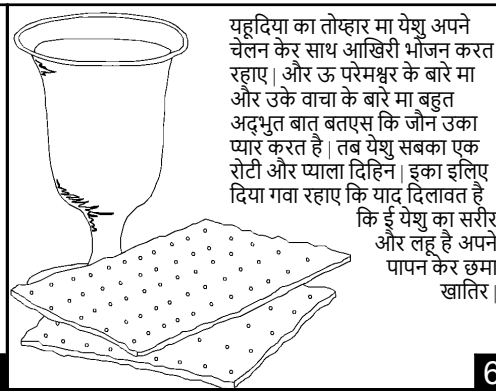 यहूदिया का तोय्हार मा येशु अपने
चेलन केर साथ आखिरी भोजन करत
रहाए | और ऊ परेमश्वर के बारे मा
और उके वाचा के बारे मा बहुत
अद्भुत बात बतएस कि जौन उका
प्यार करत है | तब येशु सबका एक
रोटी और प्याला दिहिन | इका इलिए
दिया गवा रहाए कि याद दिलावत है
कि ई येशु का सरीर
और लहू है अपने
पापन केर छमा
खातिर |
6